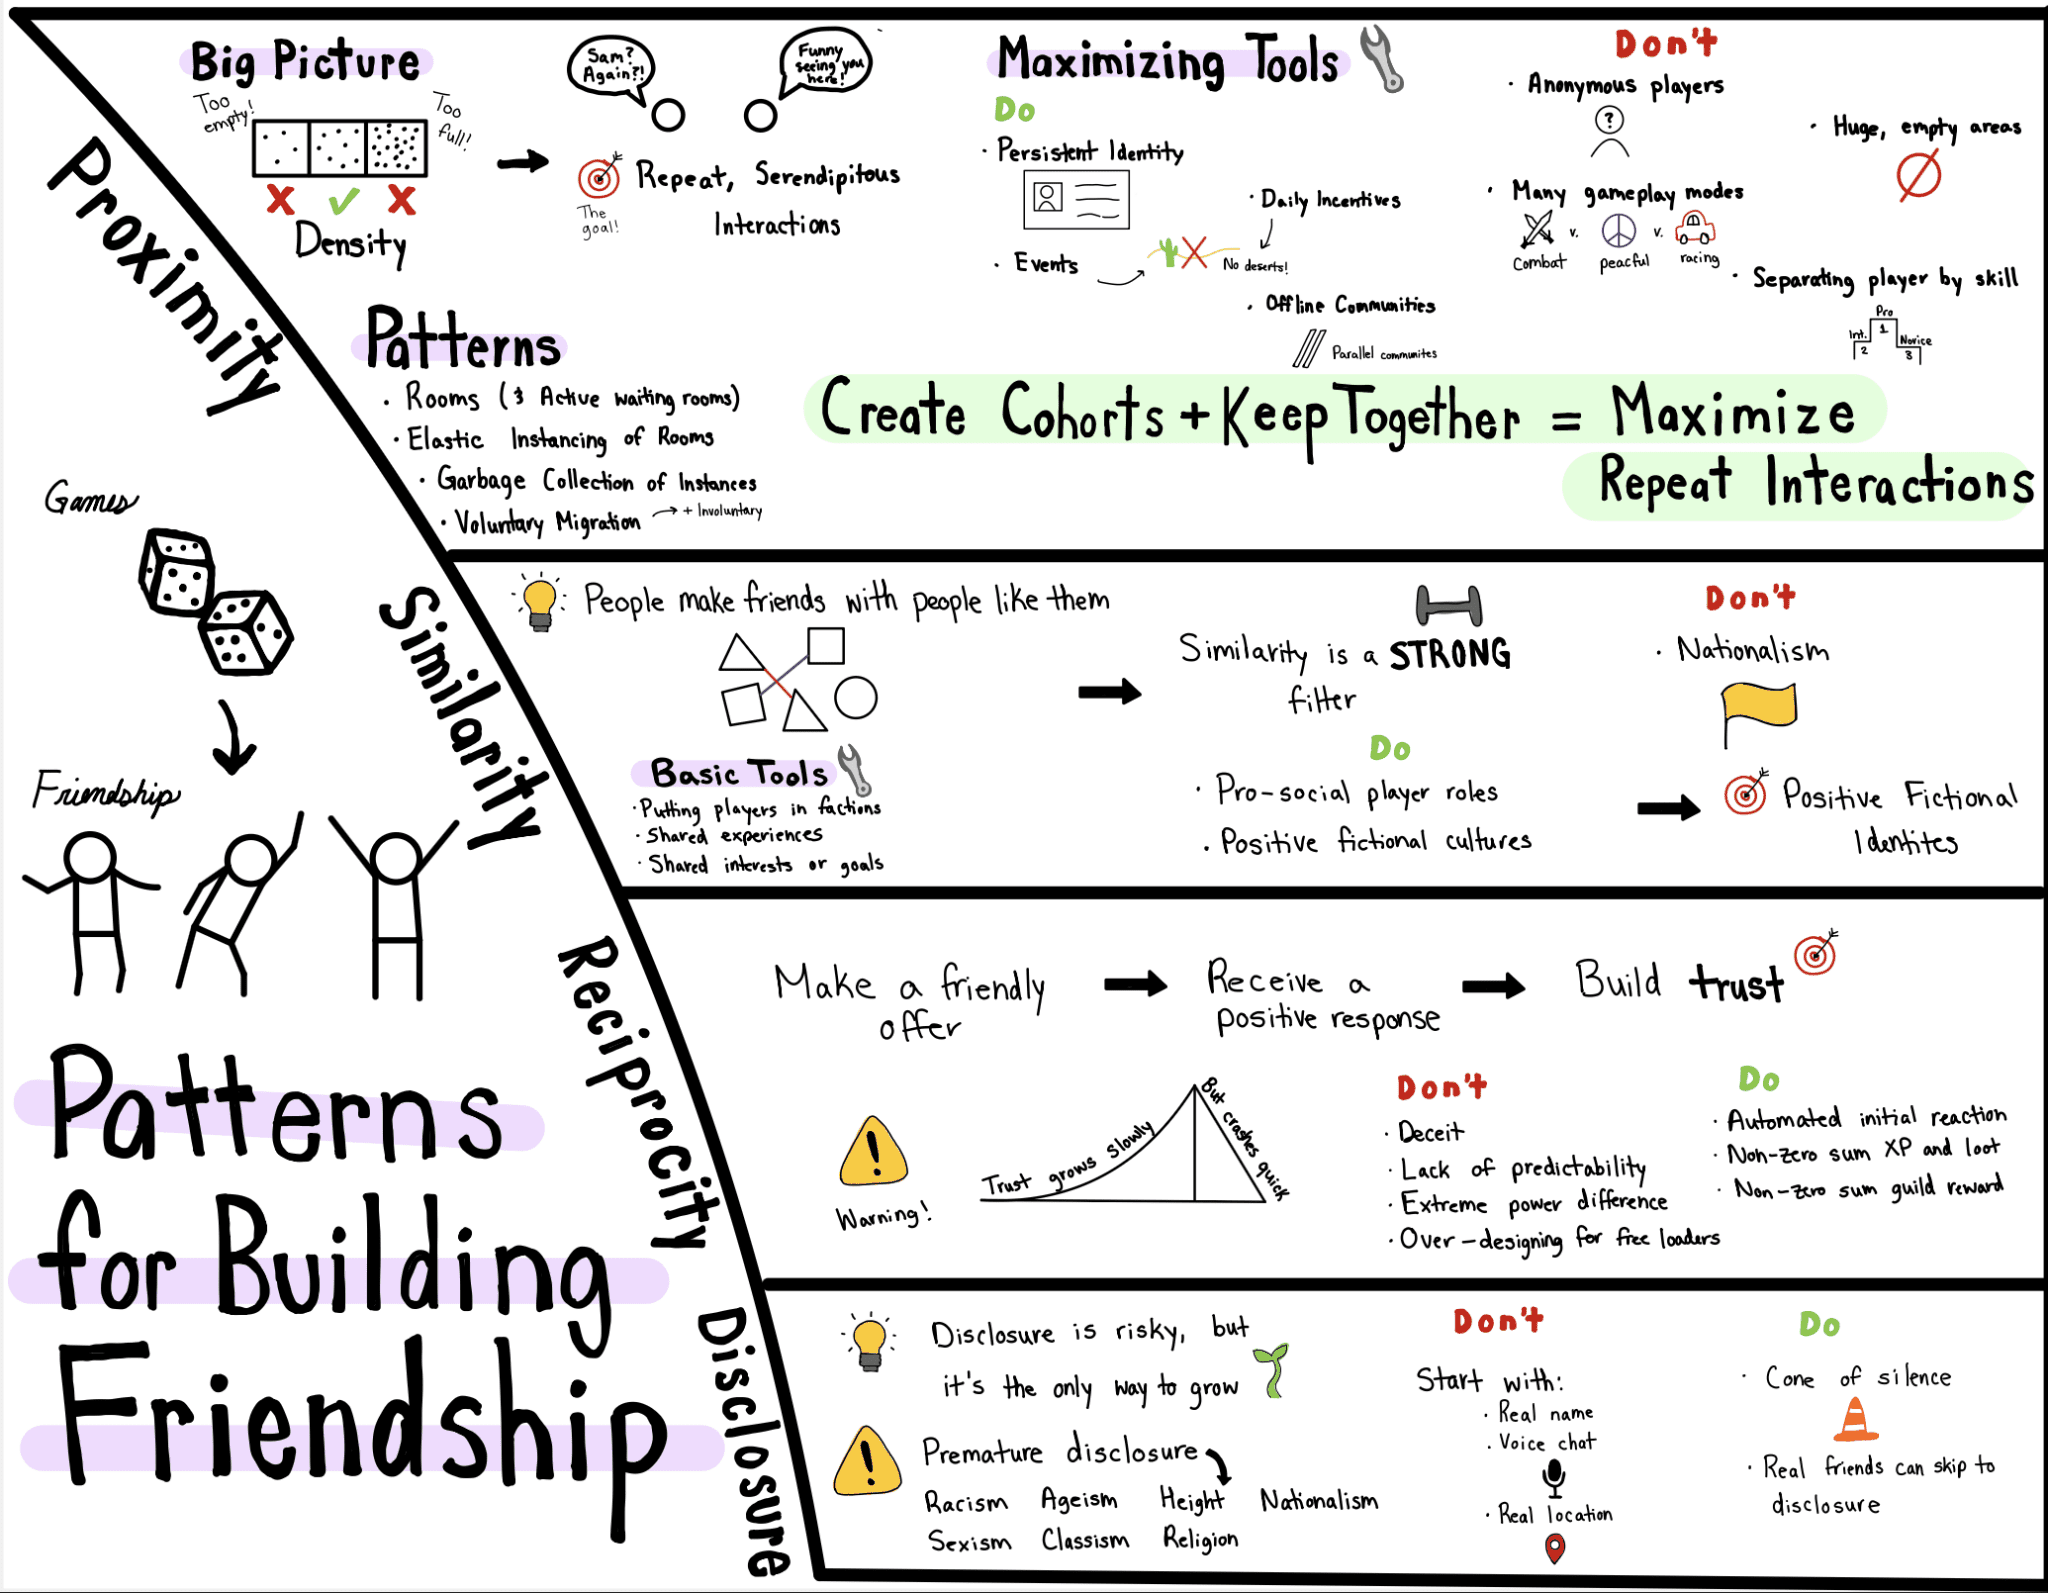 Games
Friendship
Patterns
for Building
Friendship
Proximity
Big Picture
Too
empty!
Too
full!
Density
Sam?
Again?!
Funny
seeing you
here!
The
goal!
Repeat, Serendipitous
Interactions
Patterns
· Rooms (& Active waiting rooms)
· Elastic Instancing of Rooms
· Garbage Collection of Instances
· Voluntary Migration → + Involuntary
Maximizing Tools
Do
· Persistent Identity
· Daily Incentives
· Events
No deserts!
· Offline Communities
Parallel communites
Don't
· Anonymous players
?
· Huge, empty areas
· Many gameplay modes
v.
v.
Combat
peacful
racing
· Separating player by skill
Pro
Int.
1
Novice
2
3
Create Cohorts + Keep Together = Maximize
Repeat Interactions
Similarity
People make friends with people like them
Basic Tools
· Putting players in factions
· Shared experiences
· Shared interests or goals
Similarity is a STRONG
filter
Do
· Pro-social player roles
· Positive fictional cultures
Don't
· Nationalism
Positive Fictional
Identites
Reciprocity
Make a friendly
offer
Receive a
positive response
Build trust
!
Warning!
Trust grows slowly
But crashes quick
Don't
· Deceit
· Lack of predictability
· Extreme power difference
· Over-designing for free loaders
Do
· Automated initial reaction
· Non-zero sum XP and loot
· Non-zero sum guild reward
Disclosure
Disclosure is risky, but
it's the only way to grow
!
Premature disclosure
Racism Ageism Height Nationalism
Sexism Classism Religion
Don't
Start with:
· Real name
· Voice chat
· Real location
Do
· Cone of silence
· Real friends can skip to
disclosure